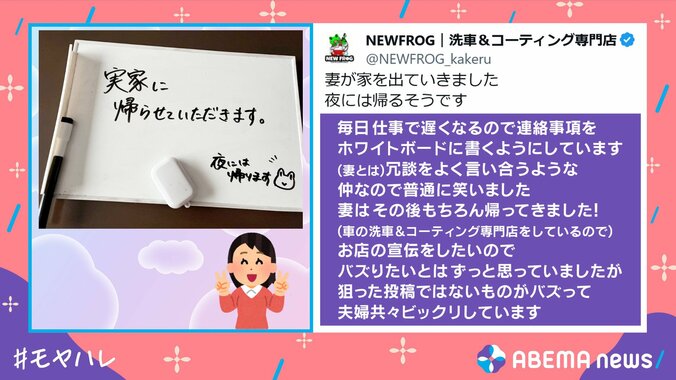 実家に
帰らせていただきます。
夜には
帰ります
NEW FROG
NEWFROG｜洗車＆コーティング専門店
@NEWFROG_kakeru
妻が家を出ていきました
夜には帰るそうです
毎日 仕事で遅くなるので連絡事項を
ホワイトボードに書くようにしています
(妻とは)冗談をよく言い合うような
仲なので普通に笑いました
妻は その後もちろん帰ってきました！
(車の洗車＆コーティング専門店をしているので)
お店の宣伝をしたいので
バズりたいとは ずっと思っていましたが
狙った投稿ではないものがバズって
夫婦共々ビックリしています
#モヤハレ
ABEMA news/